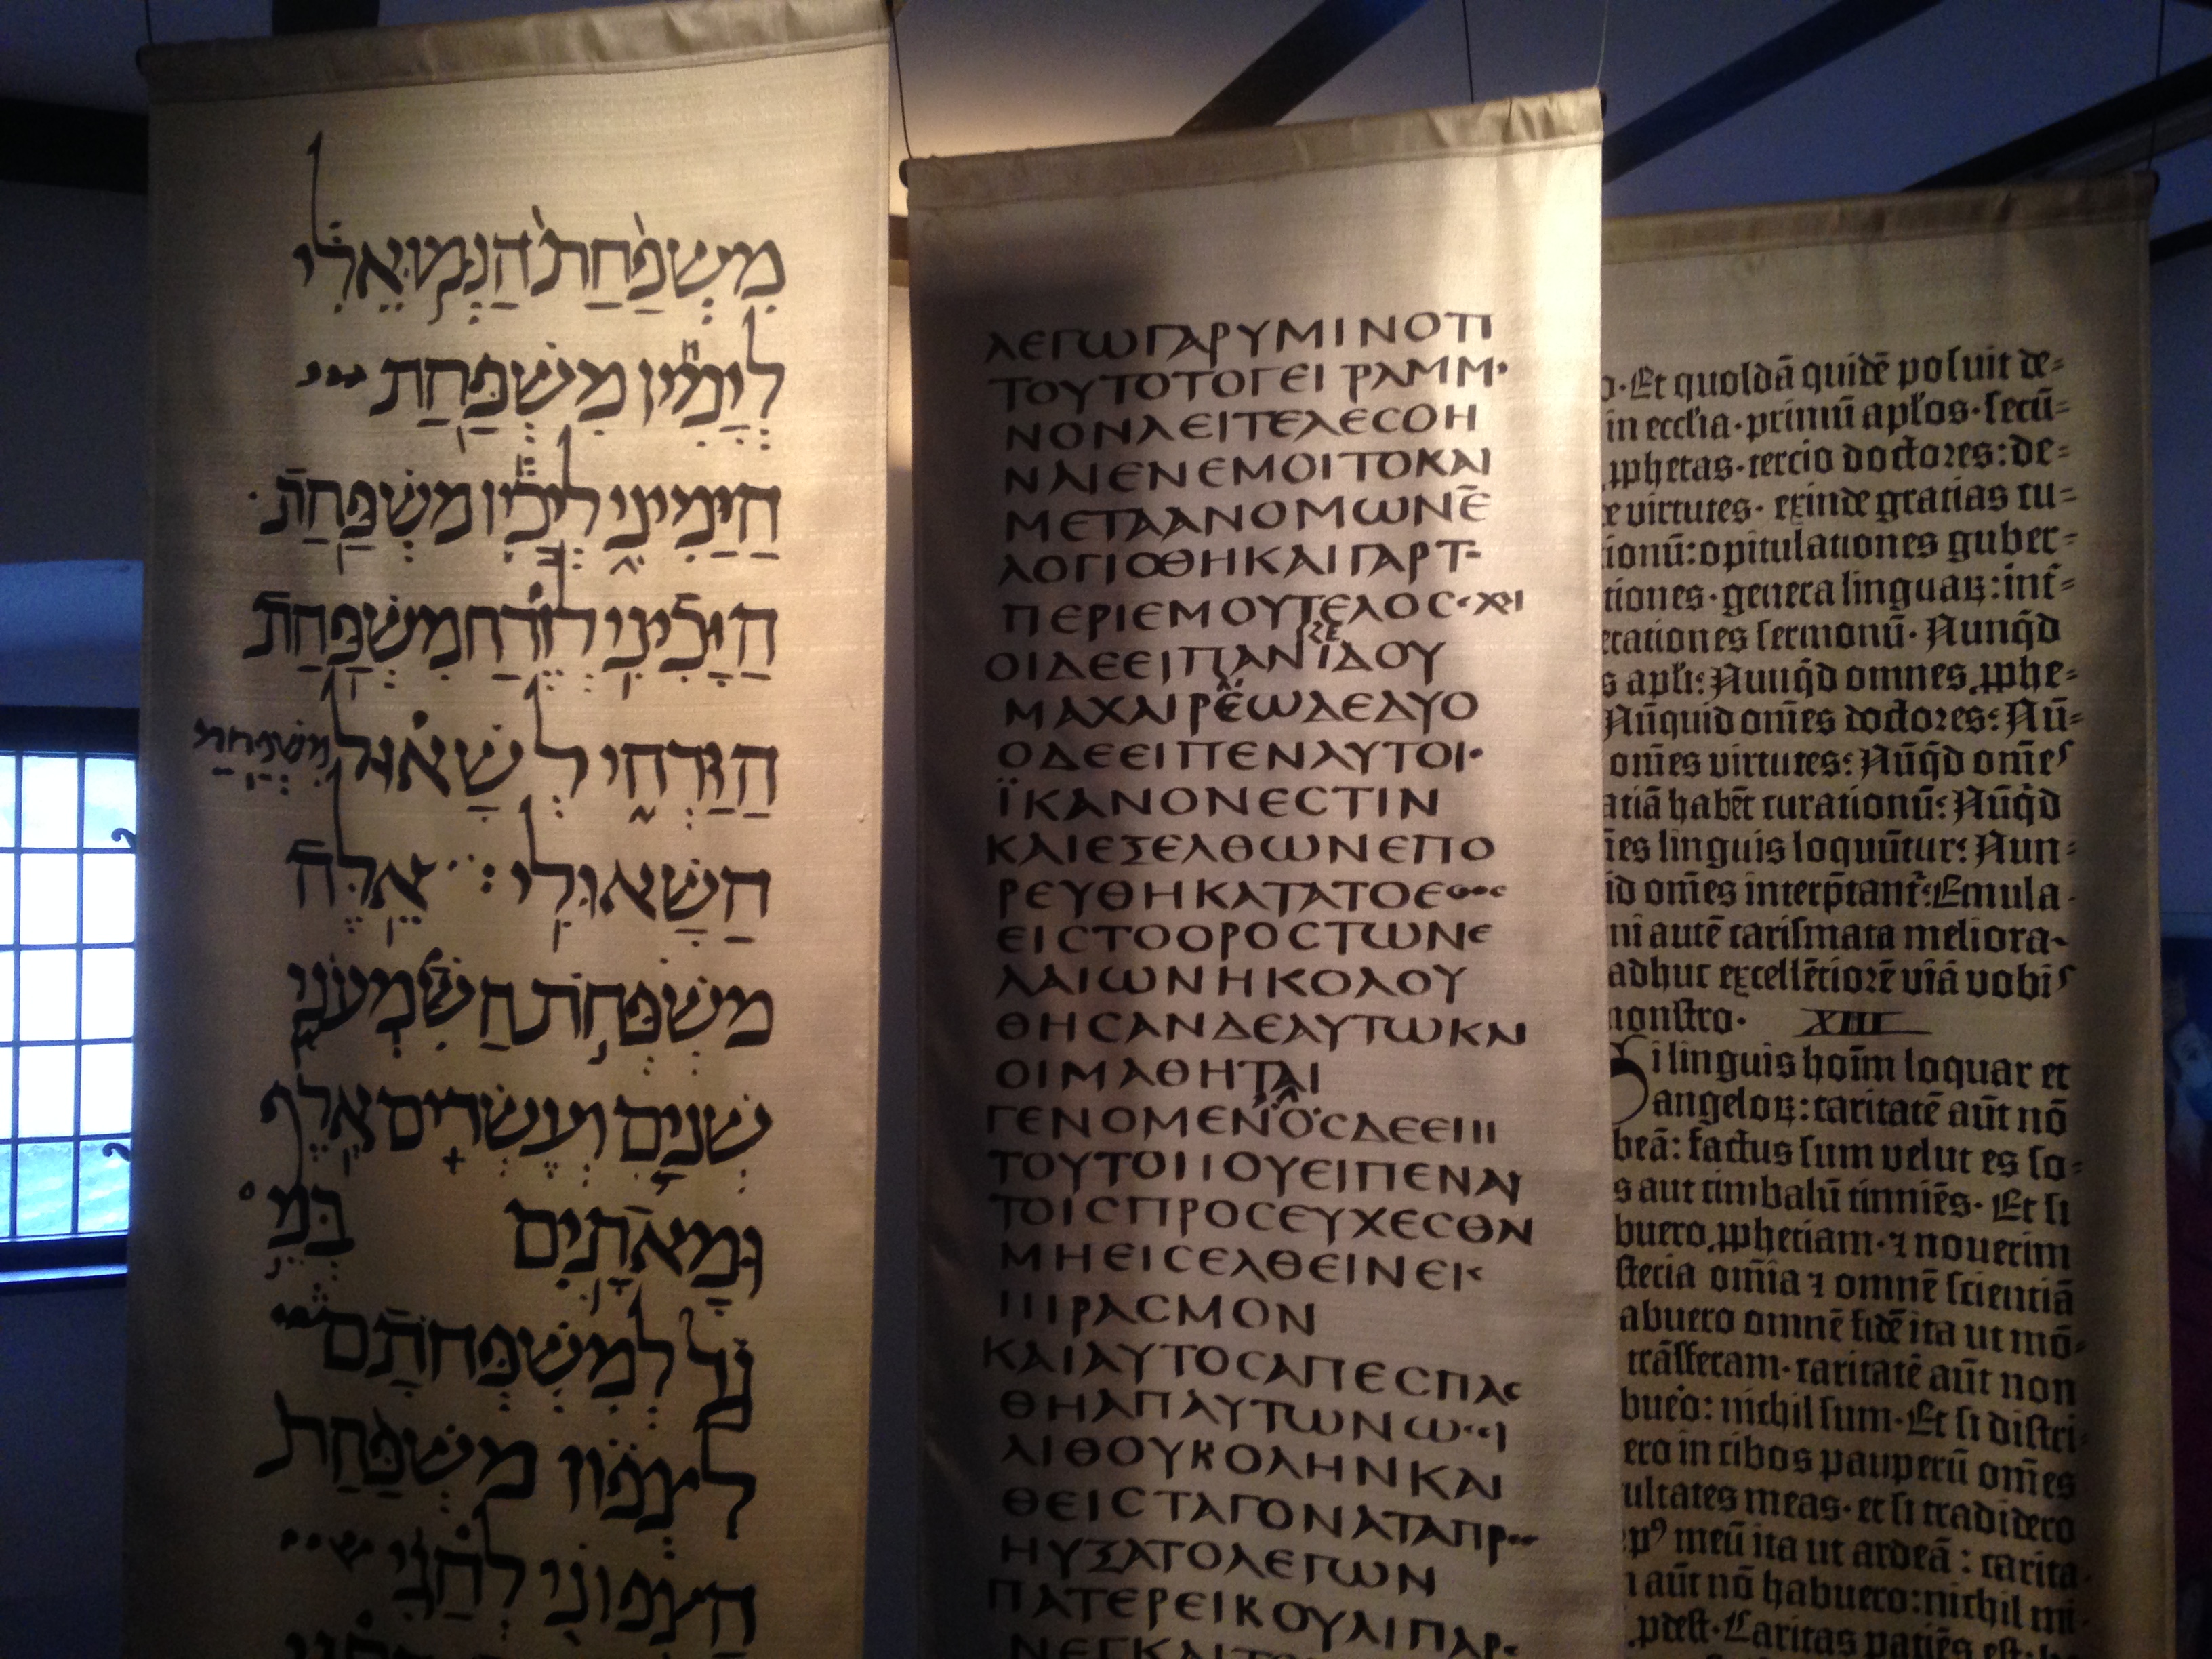 מִשְׁפַּחַת הַנְּמוּאֵלִי
לְיָמִין מִשְׁפַּחַת
הַיָּמִינִי לְיָכִין מִשְׁפַּחַת
הַיָּכִינִי לְזֶרַח מִשְׁפַּחַת
הַזַּרְחִי לְשָׁאוּל מִשְׁפַּחַת
הַשָּׁאוּלִי׃ אֵלֶּה
מִשְׁפְּחֹת הַשִּׁמְעֹנִי
שְׁנַיִם וְעֶשְׂרִים אֶלֶף
וּמָאתָיִם
לְמִשְׁפְּחֹתָם
לִצְפוֹן מִשְׁפַּחַת
הַצְּפוֹנִי לְחַגִּי
ΛΕΓΩΓΑΡΥΜΙΝΟΤΙ
ΤΟΥΤΟΤΟΓΕΓΡΑΜΜ
ΝΟΝΔΕΙΤΕΛΕCΘΗ
ΝΑΙΕΝΕΜΟΙΤΟΚΑΙ
ΜΕΤΑΑΝΟΜΩΝΕ
ΛΟΓΙCΘΗΚΑΙΓΑΡΤ
ΠΕΡΙΕΜΟΥΤΕΛΟC
ΟΙΔΕΕΙΠΑΝΙΔΟΥ
ΜΑΧΑΙΡΕΩΔΕΔΥΟ
ΟΔΕΕΙΠΕΝΑΥΤΟΙ
ΪΚΑΝΟΝΕCΤΙΝ
ΚΑΙΕΞΕΛΘΩΝΕΠΟ
ΡΕΥΘΗΚΑΤΑΤΟΕΘΟC
ΕΙCΤΟΟΡΟCΤΩΝΕ
ΛΑΙΩΝΗΚΟΛΟΥ
ΘΗCΑΝΔΕΑΥΤΩΚΑΙ
ΟΙΜΑΘΗΤΑΙ
ΓΕΝΟΜΕΝΟCΔΕΕΠΙ
ΤΟΥΤΟΠΟΥΕΙΠΕΝΑΥ
ΤΟΙCΠΡΟCΕΥΧΕCΘΑΙ
ΜΗΕΙCΕΛΘΕΙΝΕΙC
ΠΙΡΑCΜΟΝ
ΚΑΙΑΥΤΟCΑΠΕCΠΑC
ΘΗΑΠΑΥΤΩΝΩCΕΙ
ΛΙΘΟΥΒΟΛΗΝΚΑΙ
ΘΕΙCΤΑΓΟΝΑΤΑΠΡΟC
ΗΥΞΑΤΟΛΕΓΩΝ
ΠΑΤΕΡΕΙΒΟΥΛΙΠΑΡ
ΝΕΓΚΑΙ
Et quoſdā quidē poſuit de-
in eccľia · primū apľos · ſecū-
ꝓphetas · tercio doctores : de-
virtutes · exinde gratias cu-
ionū : opitulationes guber-
tiones · genera linguaꝝ : int̃-
tationes ſermonū · Nunq̃d
apľi : Nunq̃d omnes ꝓphe-
Nūquid om̄es doctores : Nū-
om̄es virtutes : Nūq̃d om̄es
atiā habēt curationū : Nūq̃d
es linguis loquūtur : Nun-
id om̄es interp̄tant̃ : Emula-
ni autē cariſmata meliora ·
adhuc excellētiorē viā vobis
monſtro · XIII
Si linguis hoīm loquar et
angeloꝝ : caritatē aūt nō
beā : factus ſum velut es ſo-
s aut cimbalū tinniēs · Et ſi
buero ꝓphetiam · ⁊ nouerim
ſteria om̄ia ⁊ omnē ſcientiā
abuero omnē fidē ita ut mō-
trāſferam · caritatē aūt non
buero : nichil ſum · Et ſi diſtri-
ero in cibos pauperū om̄es
ultates meas · et ſi tradidero
pꝰ meū ita ut ardeā : carita-
aūt nō habuero : nichil mi-
ꝓdeſt · Caritas patiēs eſt :